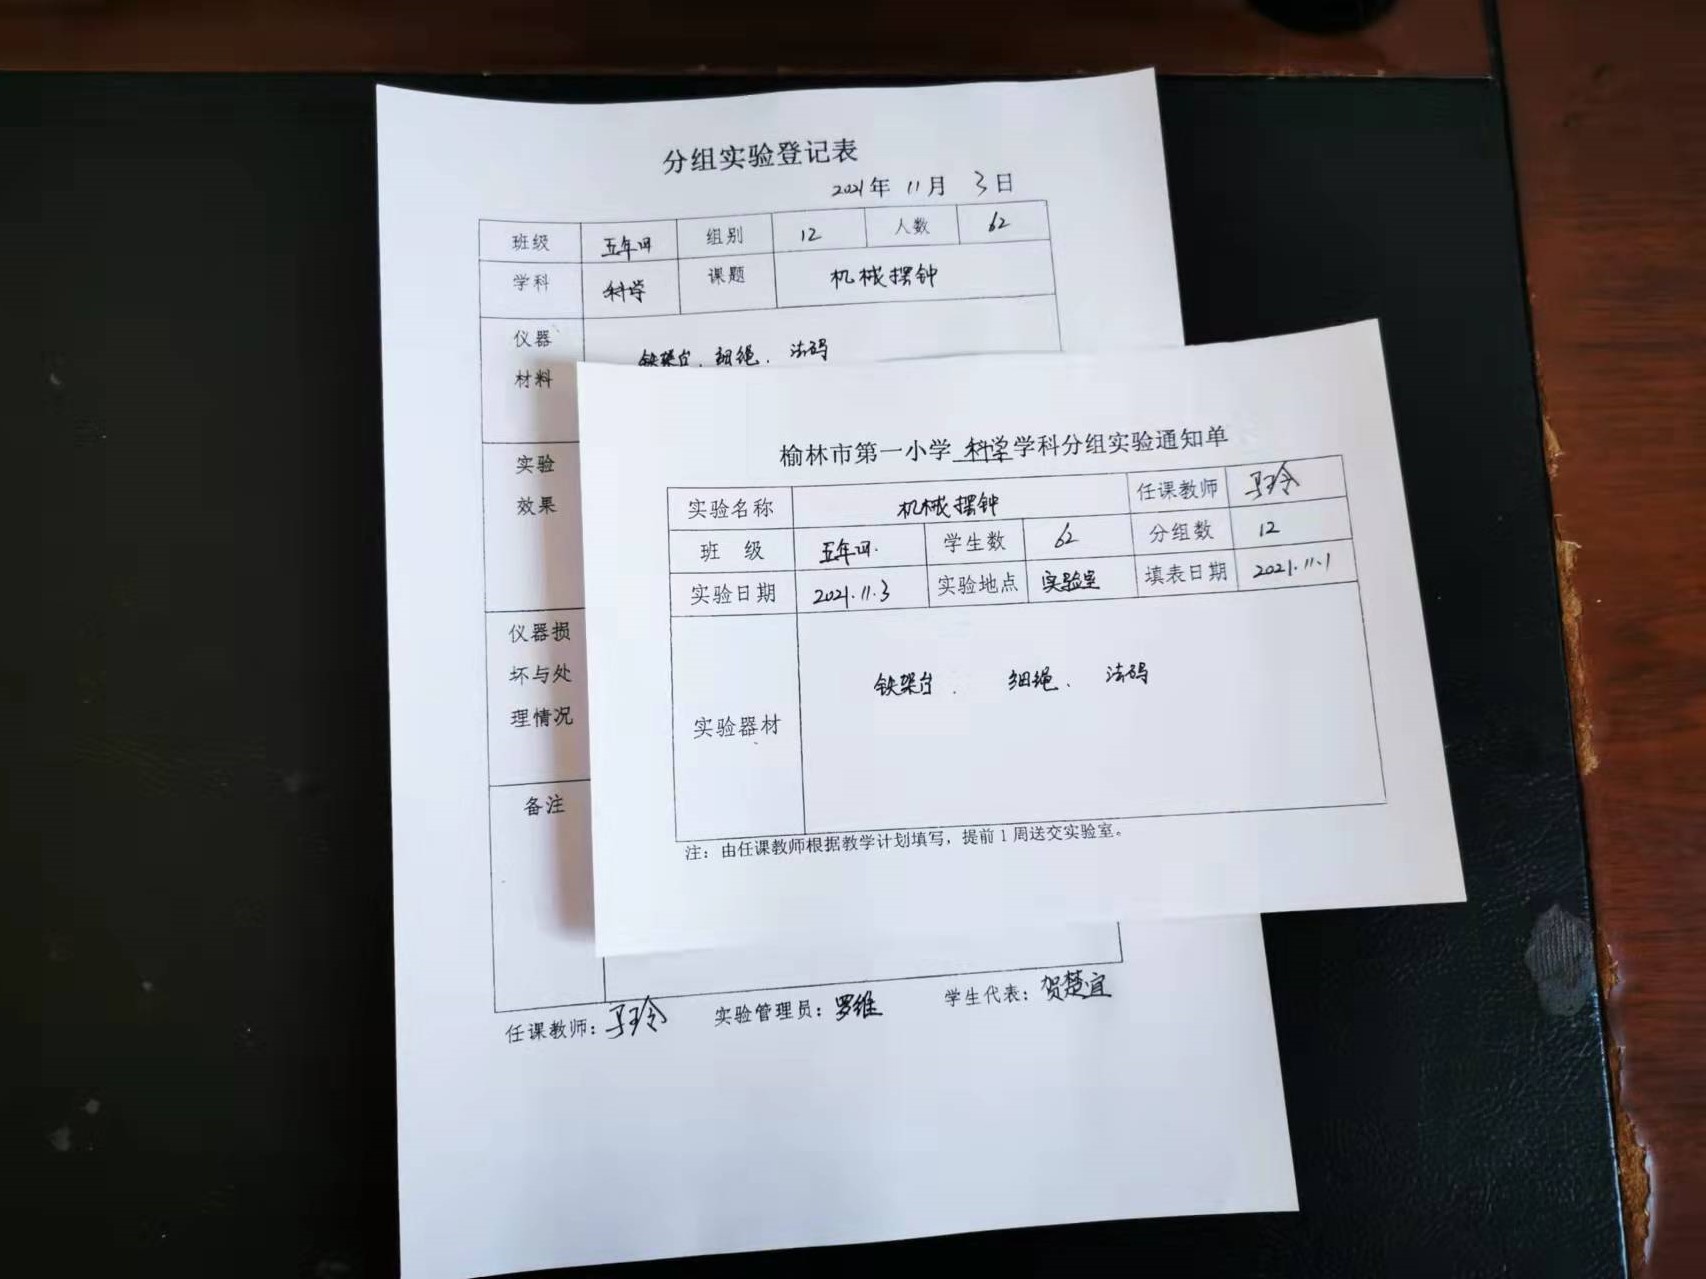 分组实验登记表
2021年 11月 3日
班级 五年四 组别 12 人数 62
学科 科学 课题 机械摆钟
仪器 铁架台、细绳、法码
材料
实验
效果
仪器损
坏与处
理情况
备注
任课教师：马玲 实验管理员：罗维 学生代表：贺楚宜
榆林市第一小学 科学 学科分组实验通知单
实验名称 机械摆钟 任课教师 马玲
班 级 五年四. 学生数 62 分组数 12
实验日期 2021.11.3 实验地点 实验室 填表日期 2021.11.1
实验器材 铁架台、 细绳、 法码
注：由任课教师根据教学计划填写，提前1周送交实验室。